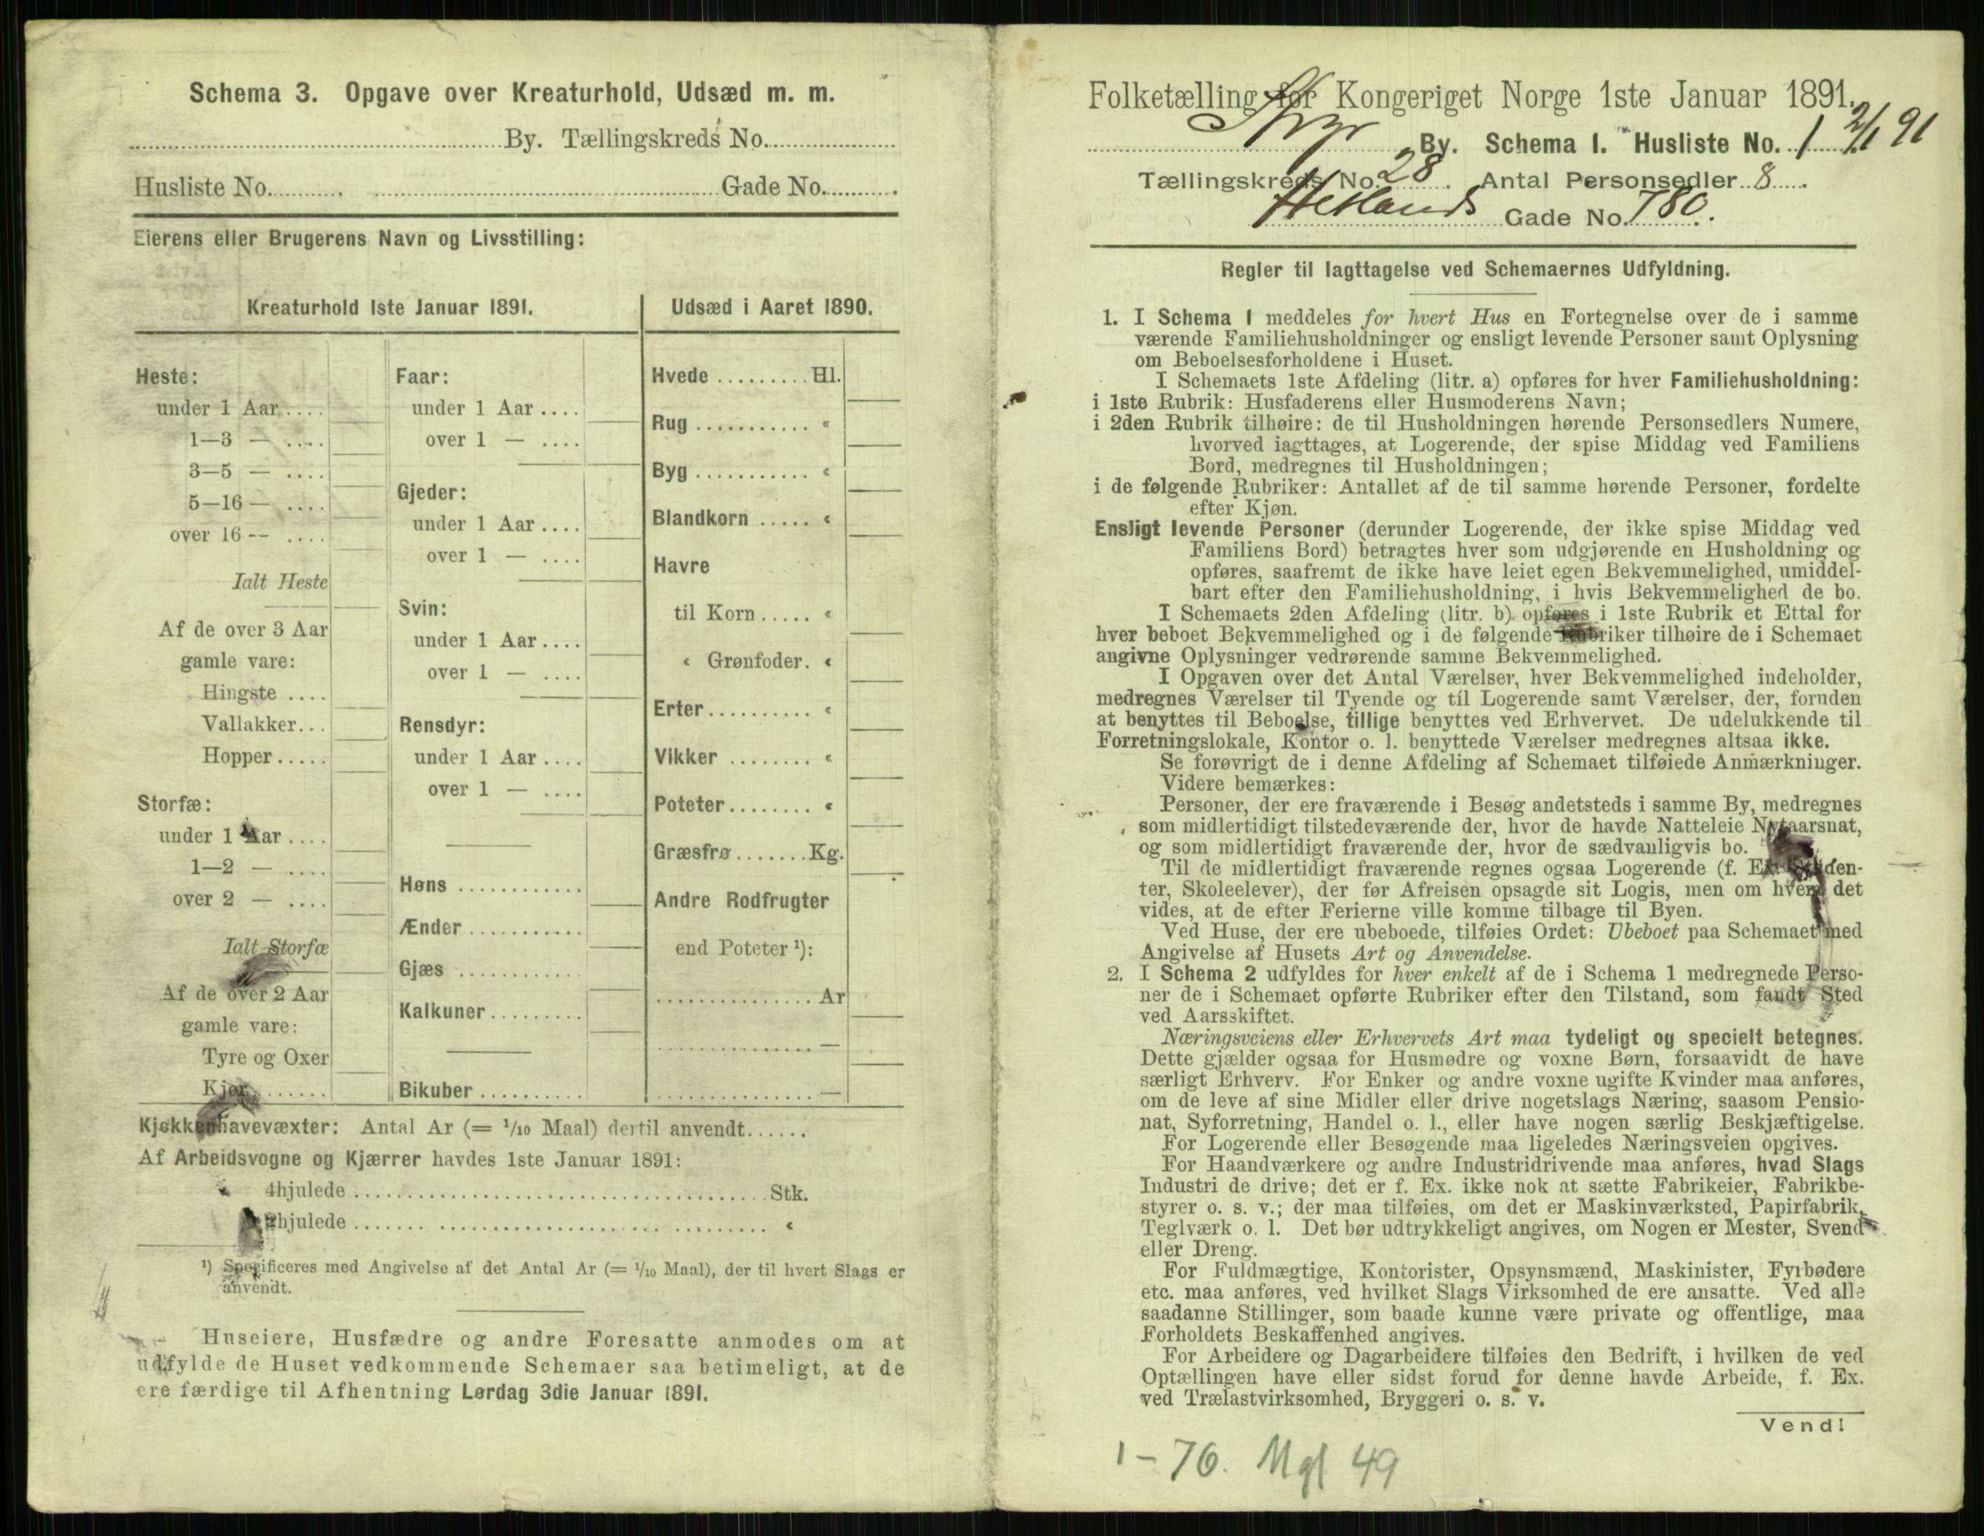 Schema 3. Opgave over Kreaturhold, Udsæd m. m.
By. Tællingskreds No.
Husliste No. Gade No.
Eierens eller Brugerens Navn og Livsstilling:
Kreaturhold 1ste Januar 1891.
Heste:
under 1 Aar ....
1—3 — ....
3—5 — ....
5—16 — ....
over 16 — ....
Ialt Heste
Af de over 3 Aar
gamle vare:
Hingste ....
Vallakker...
Hopper.....
Storfæ:
under 1 Aar....
1—2 — ....
over 2 — ....
Ialt Storfæ
Af de over 2 Aar
gamle vare:
Tyre og Oxer
Kjør.......
Faar:
under 1 Aar ....
over 1 — ....
Gjeder:
under 1 Aar ....
over 1 — ....
Svin:
under 1 Aar ....
over 1 — ....
Rensdyr:
under 1 Aar ....
over 1 — ....
Høns ...........
Ænder ...........
Gjæs ...........
Kalkuner.........
Bikuber..........
Udsæd i Aaret 1890.
Hvede .........Hl.
Rug ........... «
Byg ........... «
Blandkorn ..... «
Havre
til Korn..... «
« Grønfoder. «
Erter.......... «
Vikker ........ «
Poteter........ «
Græsfrø.......Kg.
Andre Rodfrugter
end Poteter ¹):
...............Ar
...............—
...............—
Kjøkkenhavevæxter: Antal Ar (= 1/10 Maal) dertil anvendt......
Af Arbeidsvogne og Kjærrer havdes 1ste Januar 1891:
4hjulede ..................................Stk.
2hjulede .................................. «
¹) Specificeres med Angivelse af det Antal Ar (= 1/10 Maal), der til hvert Slags er
anvendt.
Huseiere, Husfædre og andre Foresatte anmodes om at
udfylde de Huset vedkommende Schemaer saa betimeligt, at de
ere færdige til Afhentning Lørdag 3die Januar 1891.
Folketælling for Kongeriget Norge 1ste Januar 1891.
By. Schema I. Husliste No. 1 2/1 91
Tællingskreds No. 28. Antal Personsedler 8.
Hetlands Gade No. 780.
Regler til Iagttagelse ved Schemaernes Udfyldning.
1. I Schema 1 meddeles for hvert Hus en Fortegnelse over de i samme
værende Familiehusholdninger og ensligt levende Personer samt Oplysning
om Beboelsesforholdene i Huset.
I Schemaets 1ste Afdeling (litr. a) opføres for hver Familiehusholdning:
i 1ste Rubrik: Husfaderens eller Husmoderens Navn;
i 2den Rubrik tilhøire: de til Husholdningen hørende Personsedlers Numere,
hvorved iagttages, at Logerende, der spise Middag ved Familiens
Bord, medregnes til Husholdningen;
i de følgende Rubriker: Antallet af de til samme hørende Personer, fordelte
efter Kjøn.
Ensligt levende Personer (derunder Logerende, der ikke spise Middag ved
Familiens Bord) betragtes hver som udgjørende en Husholdning og
opføres, saafremt de ikke have leiet egen Bekvemmelighed, umiddel-
bart efter den Familiehusholdning, i hvis Bekvemmelighed de bo.
I Schemaets 2den Afdeling (litr. b) opføres i 1ste Rubrik et Ettal for
hver beboet Bekvemmelighed og i de følgende Rubriker tilhøire de i Schemaet
angivne Oplysninger vedrørende samme Bekvemmelighed.
I Opgaven over det Antal Værelser, hver Bekvemmelighed indeholder,
medregnes Værelser til Tyende og til Logerende samt Værelser, der, foruden
at benyttes til Beboelse, tillige benyttes ved Erhvervet. De udelukkende til
Forretningslokale, Kontor o. l. benyttede Værelser medregnes altsaa ikke.
Se forøvrigt de i denne Afdeling af Schemaet tilføiede Anmærkninger.
Videre bemærkes:
Personer, der ere fraværende i Besøg andetsteds i samme By, medregnes
som midlertidigt tilstedeværende der, hvor de havde Natteleie Nytaarsnat,
og som midlertidigt fraværende der, hvor de sædvanligvis bo.
Til de midlertidigt fraværende regnes ogsaa Logerende (f. Ex. Studen-
ter, Skoleelever), der før Afreisen opsagde sit Logis, men om hvem det
vides, at de efter Ferierne ville komme tilbage til Byen.
Ved Huse, der ere ubeboede, tilføies Ordet: Ubeboet paa Schemaet med
Angivelse af Husets Art og Anvendelse.
2. I Schema 2 udfyldes for hver enkelt af de i Schema 1 medregnede Perso-
ner de i Schemaet opførte Rubriker efter den Tilstand, som fandt Sted
ved Aarsskiftet.
Næringsveiens eller Erhvervets Art maa tydeligt og specielt betegnes.
Dette gjælder ogsaa for Husmødre og voxne Børn, forsaavidt de have
særligt Erhverv. For Enker og andre voxne ugifte Kvinder maa anføres,
om de leve af sine Midler eller drive nogetslags Næring, saasom Pensio-
nat, Syforretning, Handel o. l., eller have nogen særlig Beskjæftigelse.
For Logerende eller Besøgende maa ligeledes Næringsveien opgives.
For Haandværkere og andre Industridrivende maa anføres, hvad Slags
Industri de drive; det er f. Ex. ikke nok at sætte Fabrikeier, Fabrikbe-
styrer o. s. v.; der maa tilføies, om det er Maskinværksted, Papirfabrik,
Teglværk o. l. Det bør udtrykkeligt angives, om Nogen er Mester, Svend
eller Dreng.
For Fuldmægtige, Kontorister, Opsynsmænd, Maskinister, Fyrbødere
etc. maa anføres, ved hvilket Slags Virksomhed de ere ansatte. Ved alle
saadanne Stillinger, som baade kunne være private og offentlige, maa
Forholdets Beskaffenhed angives.
For Arbeidere og Dagarbeidere tilføies den Bedrift, i hvilken de ved
Optællingen have eller sidst forud for denne havde Arbeide, f. Ex.
ved Trælastvirksomhed, Bryggeri o. s. v.
Vend!
1-76. Mgl 49